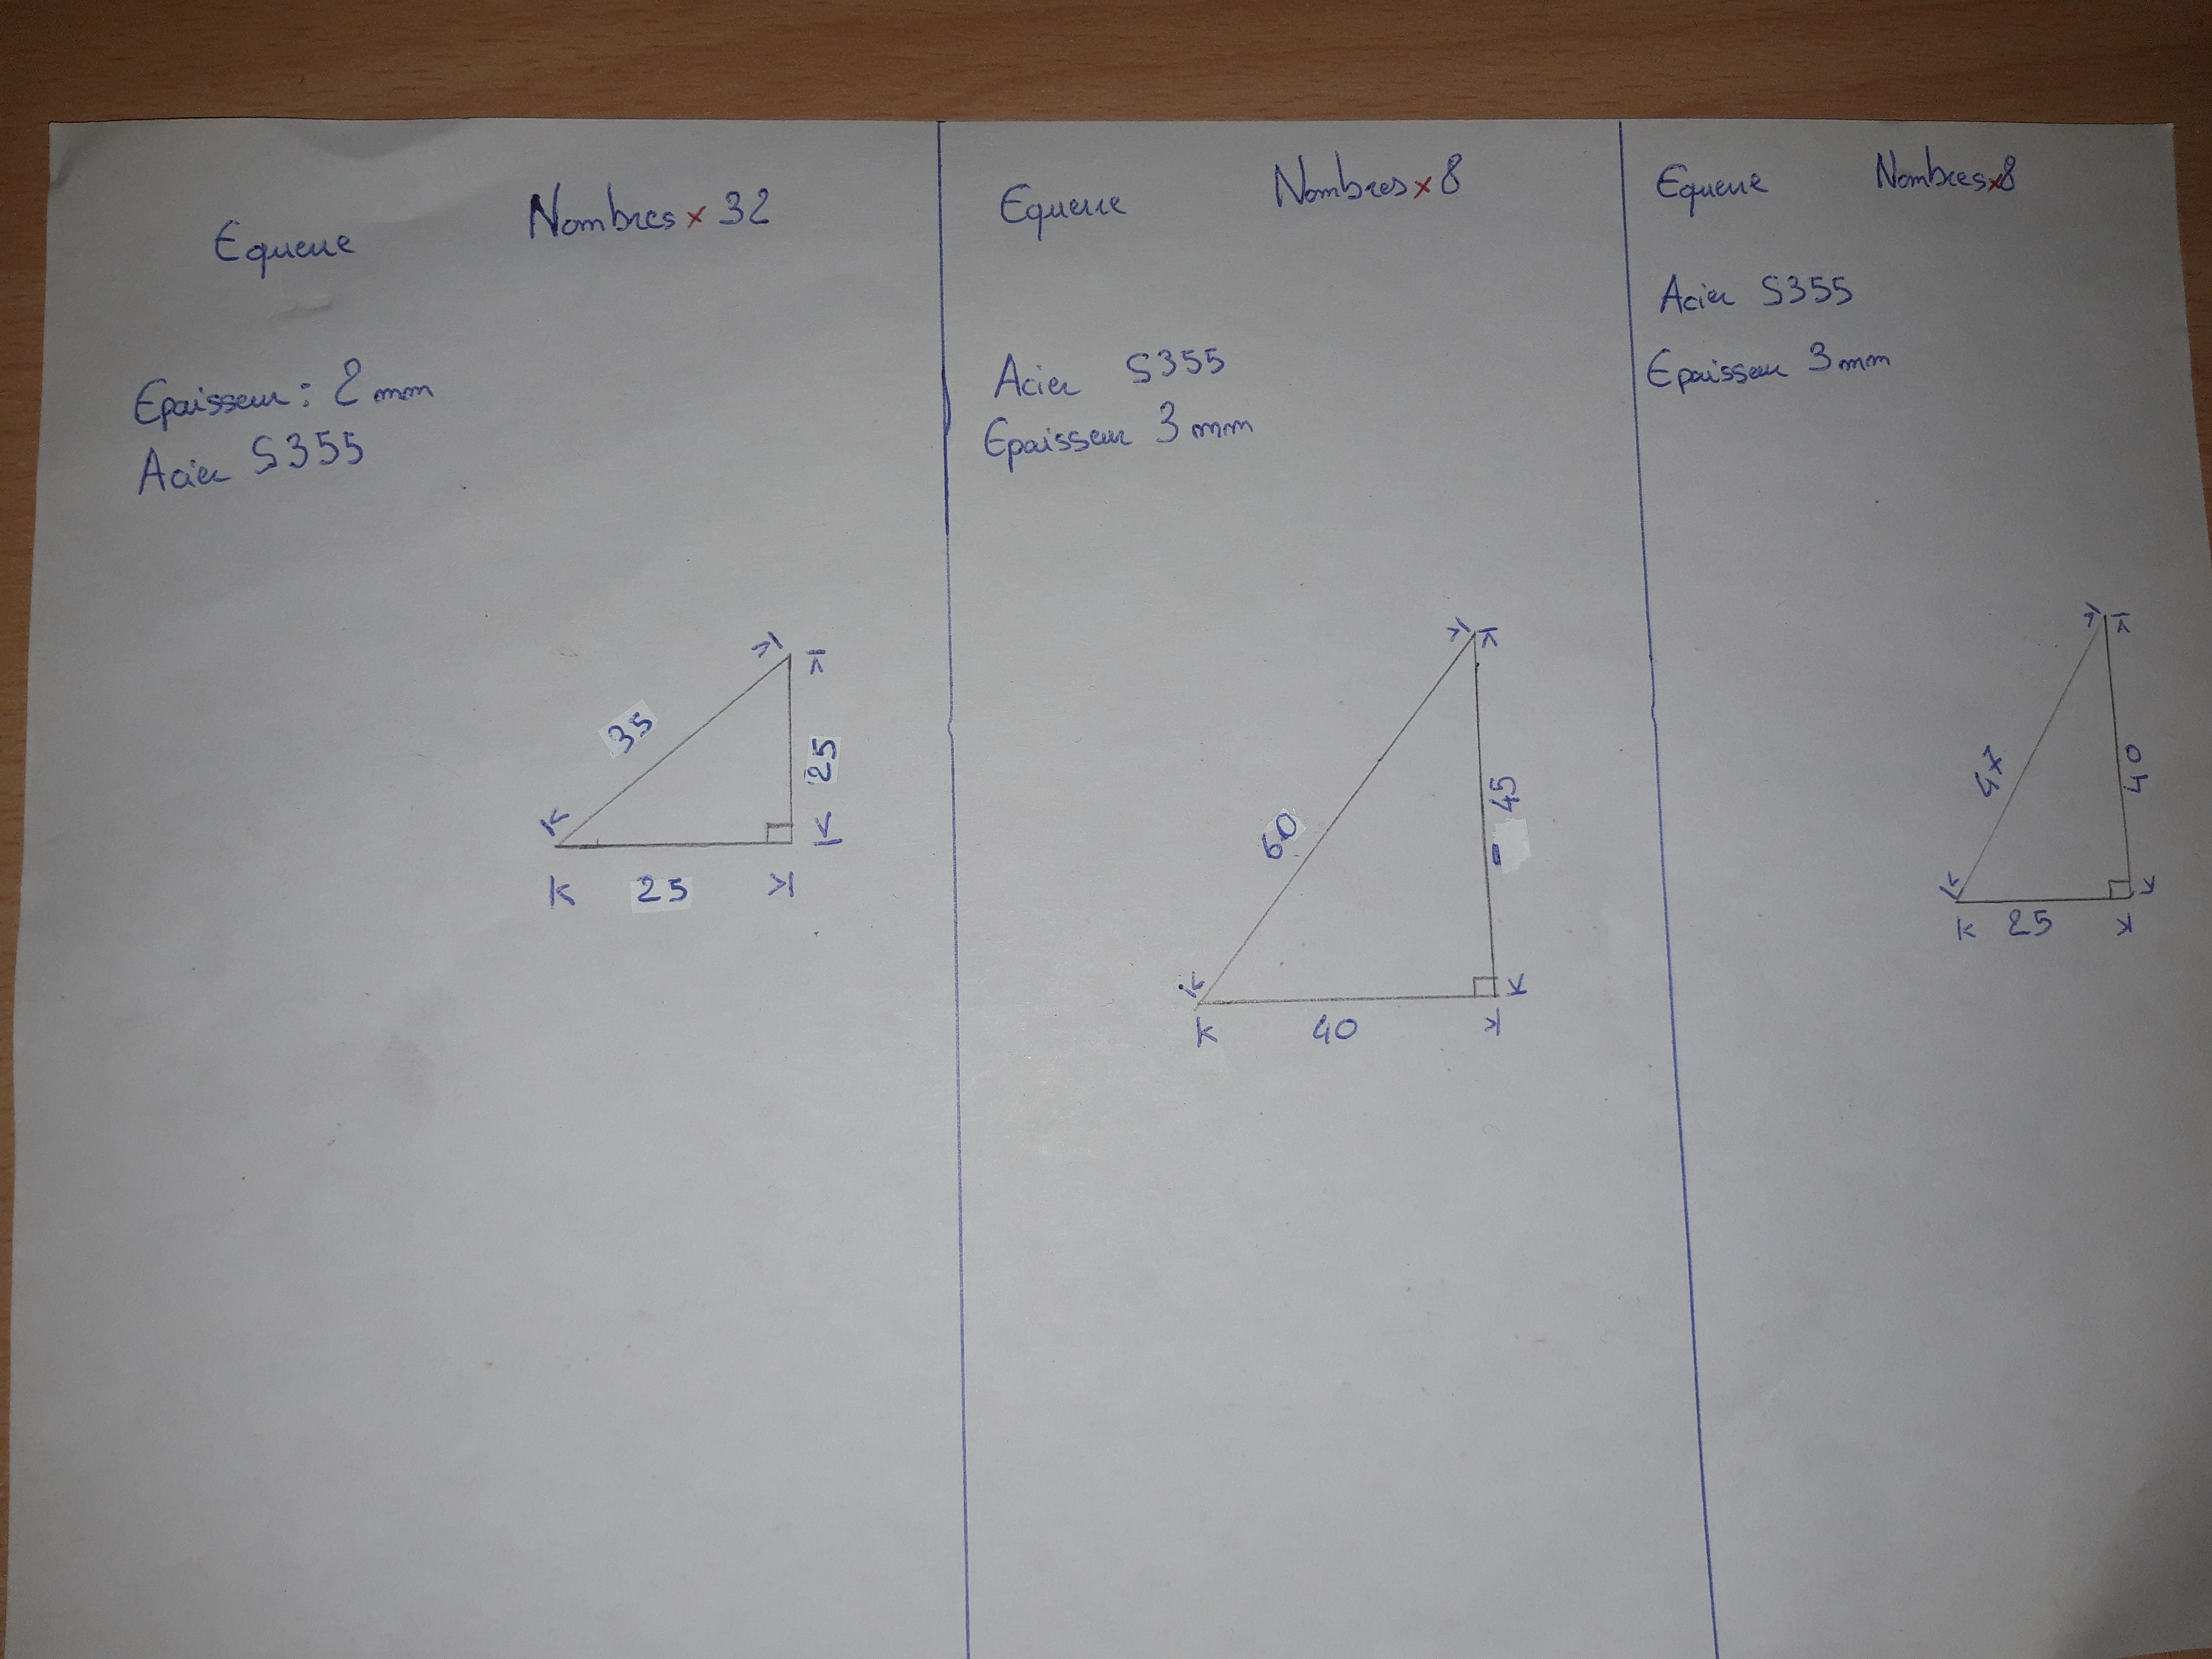 Equerre Nombres x 32
Epaisseur : 2 mm
Acier S355
35
25
25
Equerre Nombres x 8
Acier S355
Epaisseur 3 mm
60
45
40
Equerre Nombres x 8
Acier S355
Epaisseur 3 mm
47
40
25